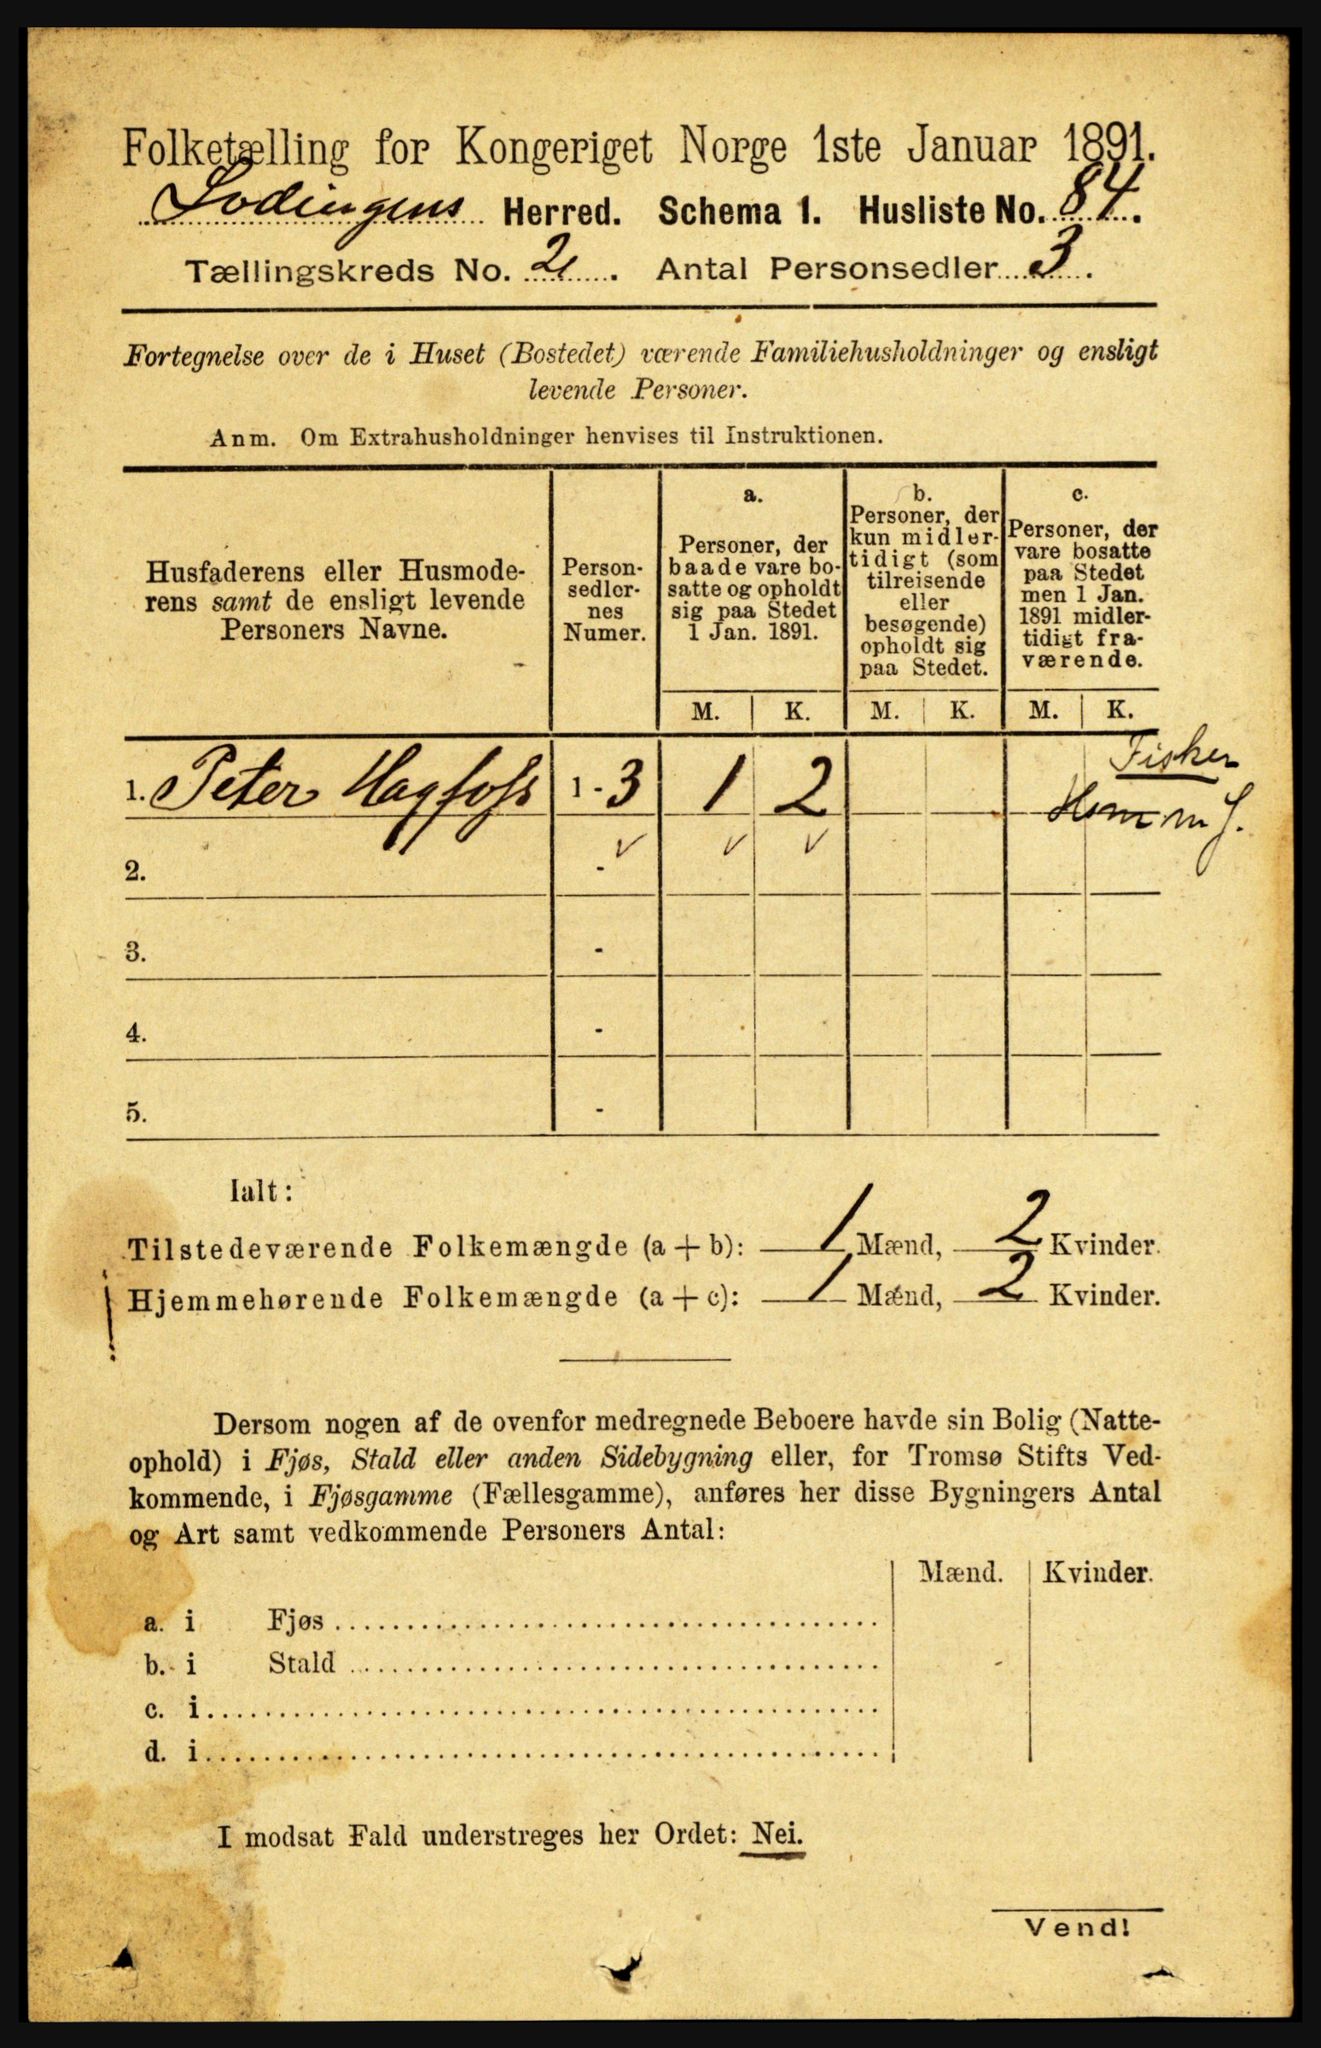 Folketælling for Kongeriget Norge 1ste Januar 1891.
Lodingens Herred. Schema 1. Husliste No. 84.
Tællingskreds No. 2. Antal Personsedler 3.
Fortegnelse over de i Huset (Bostedet) værende Familiehusholdninger og ensligt
levende Personer.
Anm. Om Extrahusholdninger henvises til Instruktionen.
Husfaderens eller Husmode-
rens samt de ensligt levende
Personers Navne.
Person-
sedler-
nes
Numer.
a.
Personer, der
baade vare bo-
satte og opholdt
sig paa Stedet
1 Jan. 1891.
b.
Personer, der
kun midler-
tidigt (som
tilreisende
eller
besøgende)
opholdt sig
paa Stedet.
c.
Personer, der
vare bosatte
paa Stedet
men 1 Jan.
1891 midler-
tidigt fra-
værende.
M. K. M. K. M. K.
Fisker
1. Peter Hagfoss 1-3 1 2
m J.
2. -
3. -
4. -
5. -
Ialt:
Tilstedeværende Folkemængde (a + b): 1 Mænd, 2 Kvinder.
Hjemmehørende Folkemængde (a + c): 1 Mænd, 2 Kvinder.
Dersom nogen af de ovenfor medregnede Beboere havde sin Bolig (Natte-
ophold) i Fjøs, Stald eller anden Sidebygning eller, for Tromsø Stifts Ved-
kommende, i Fjøsgamme (Fællesgamme), anføres her disse Bygningers Antal
og Art samt vedkommende Personers Antal:
Mænd. Kvinder.
a. i Fjøs
b. i Stald
c. i
d. i
I modsat Fald understreges her Ordet: Nei.
Vend!